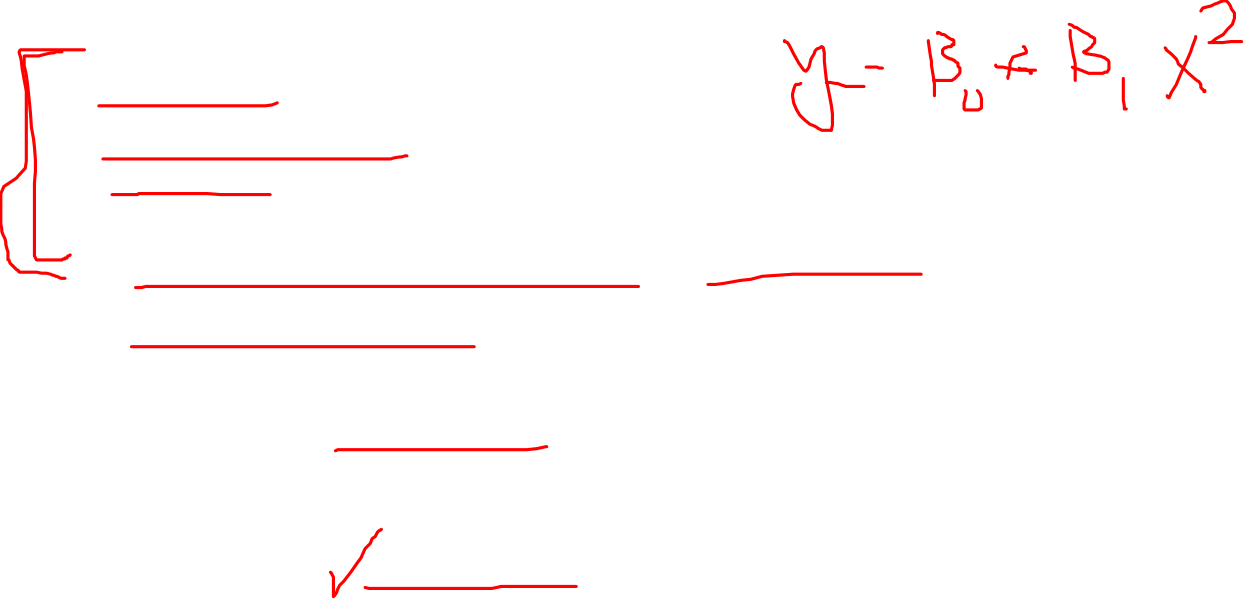 y = B₀ + B₁ x²